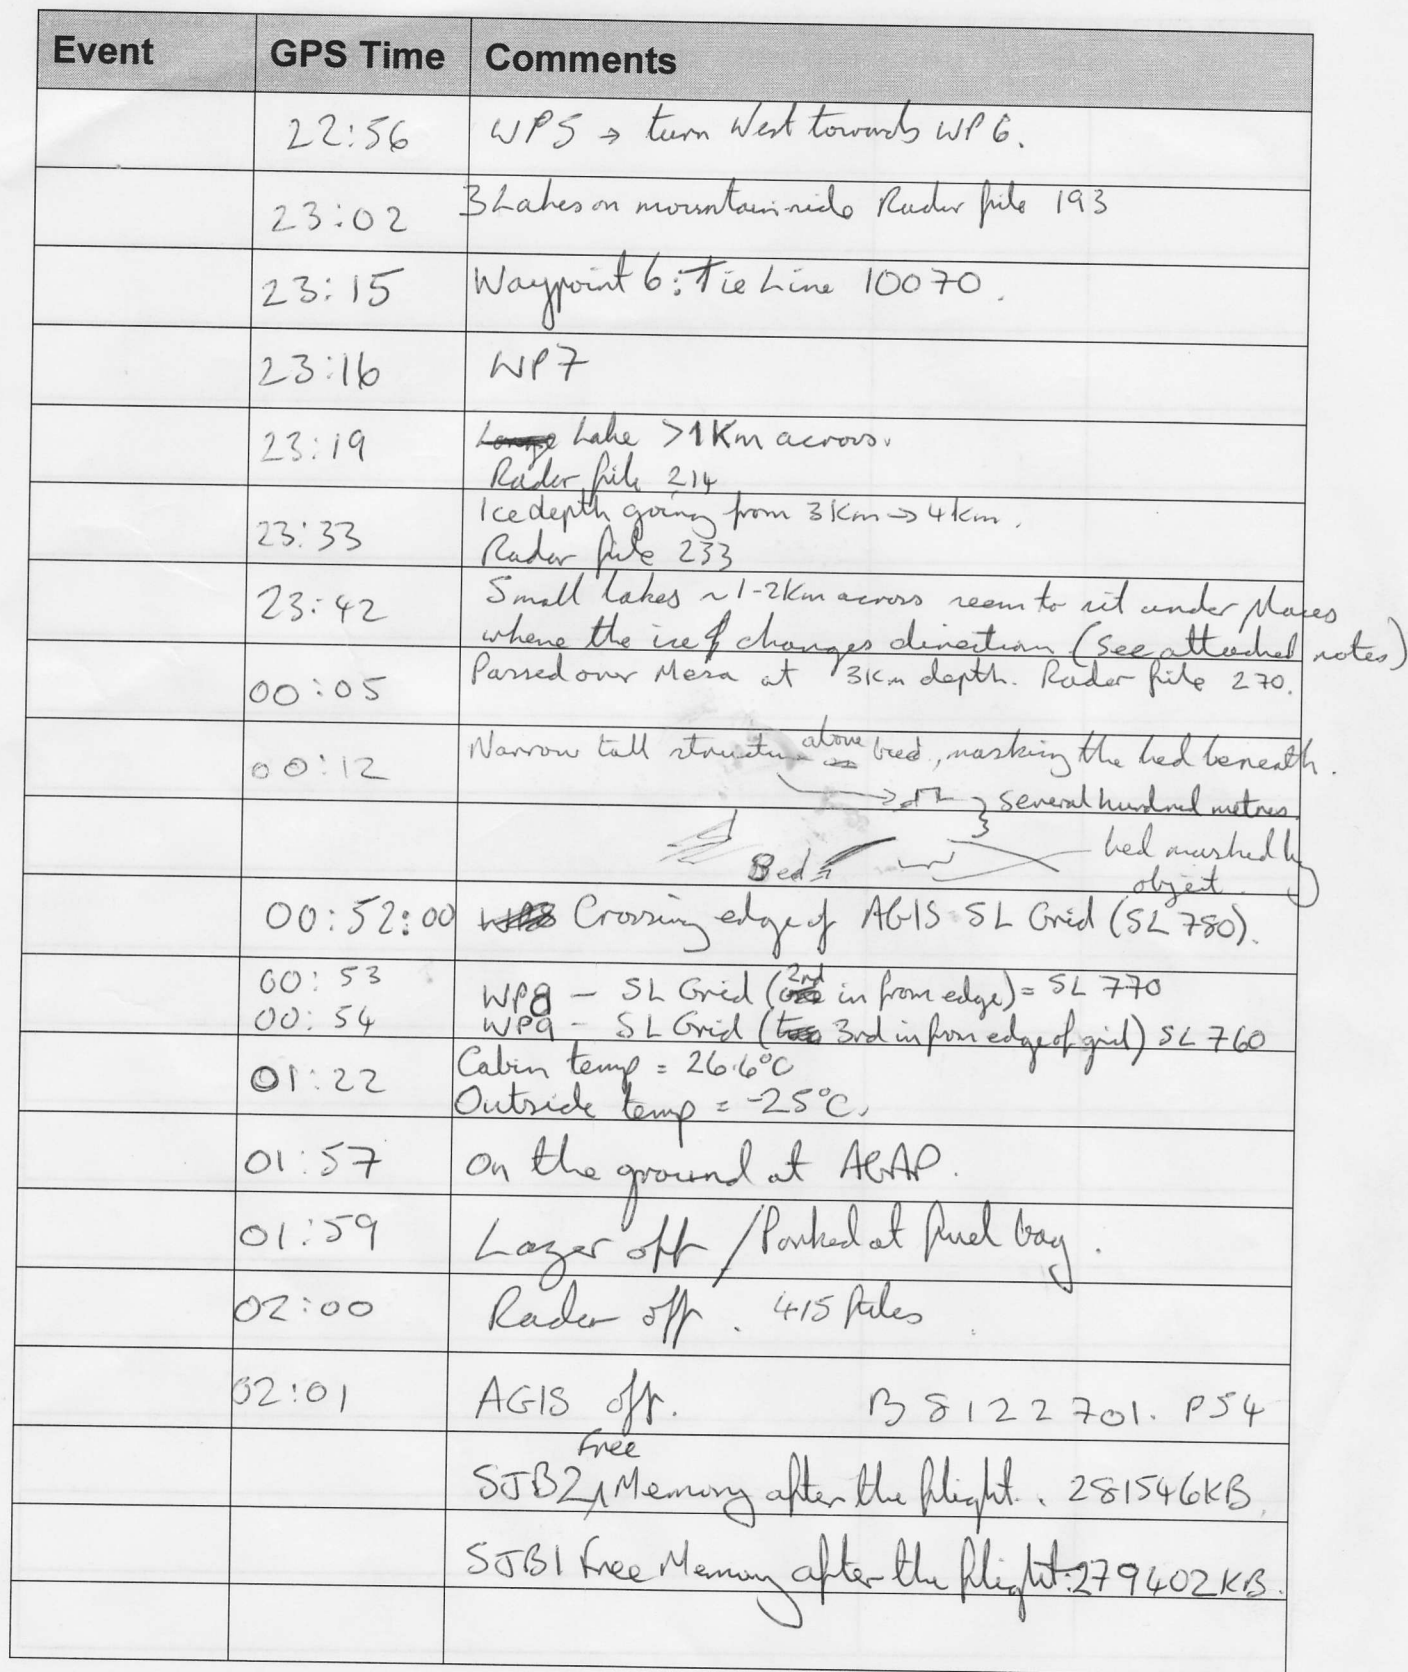 Event GPS Time Comments
22:56 WP5 → turn West towards WP6.
23:02 3 Lakes on mountainside Radar file 193
23:15 Waypoint 6: Tie Line 10070.
23:16 WP7
23:19 Lake >1Km across.
Radar file 214
23:33 Ice depth going from 3Km → 4km.
Radar file 233
23:42 Small lakes ~1-2Km across seem to sit under places
where the ice changes direction (see attached notes)
00:05 Passed over Mesa at 3Km depth. Radar file 270.
00:12 Narrow tall structure above bed, masking the bed beneath.
several hundred metres.
Bed bed masked by
object.
00:52:00 Crossing edge of AGIS SL Grid (SL 780).
00:53 WP8 - SL Grid (2nd in from edge) = SL 770
00:54 WP9 - SL Grid (3rd in from edge of grid) SL 760
01:22 Cabin temp = 26.6°C
Outside temp = -25°C.
01:57 On the ground at AGAP.
01:59 Lazer off / Parked at fuel bag.
02:00 Radar off. 415 files
02:01 AGIS off. B8122701.P54
SJB2 Free Memory after the flight. 281546KB.
SJB1 Free Memory after the flight: 279402KB.